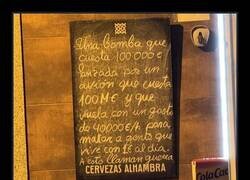 Una bomba que
cuesta 100 000 €
lanzada por un
avión que cuesta
100 M€ y que
vuela con un gasto
de 40000 €/h para
matar a gente que
vive con 1€ al día.
A esto llaman guerra
CERVEZAS ALHAMBRA
ColaCao